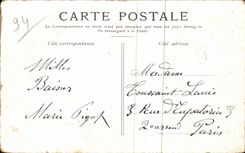 94
CARTE POSTALE
La Correspondance au recto n'est pas acceptée par tous les pays étrangers
(Se renseigner à la Poste)
Côté correspondance.
Côté adresse.
Milles
Baisers
Marie
Madame
Toussaint Louis
3 Rue d'Eupatoria 3
Paris